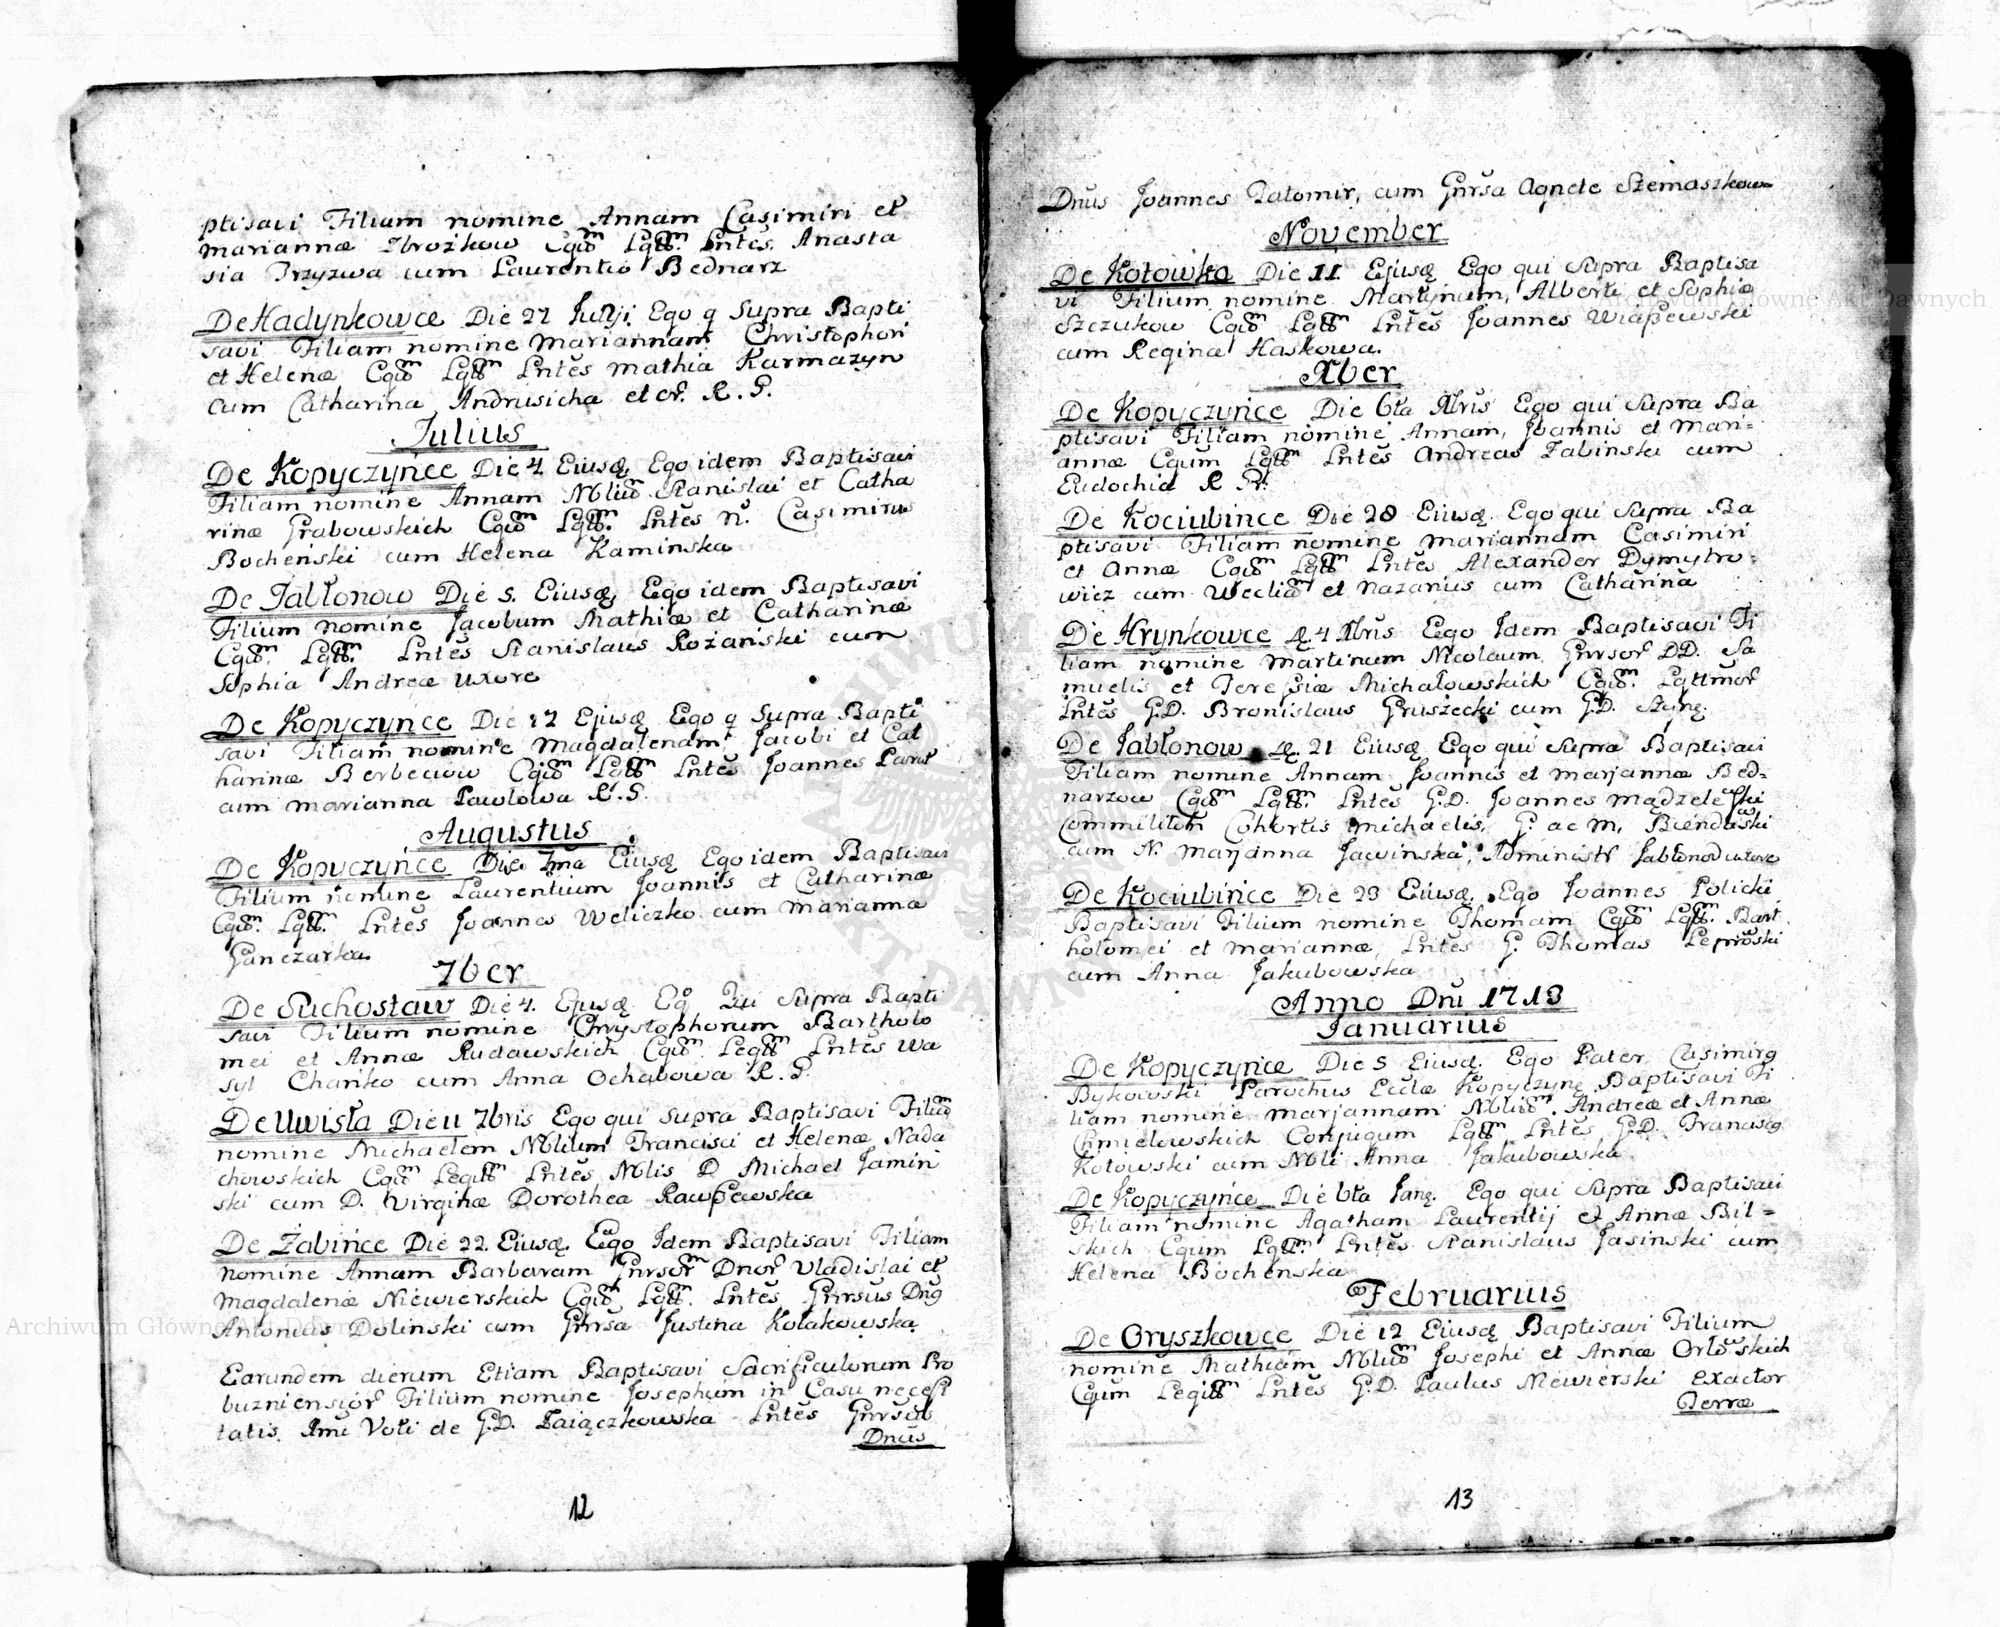 ptisavi Filiam nomine Annam Casimiri et
mariannæ Zbrożkow Cgiũm Lgttm̃. Lntẽs. Anasta
sia Przyzwa cum Laurentio Bednarz
De Hadynkowce Die 22 Julÿ Ego q Supra Bapti
savi Filiam nomine Mariannam Christophori
et Helenæ Cgiũm Lgttm̃ Lntẽs Mathia Karmazyn
cum Catharina Andrusicha et cr̃. R. P.
Julius
De Kopyczyńce Die 4 Eiusq̃, Ego idem Baptisavi
Filiam nomine Annam Nbliũm Stanislai et Catha
rinæ Grabowskich Cgiũm Lgttm̃. Lntẽs N. Casimirus
Bocheński cum Helena Kaminska
De Jabłonow Die 5. Eiusq̃, Ego idem Baptisavi
Filium nomine Jacobum Mathiæ et Catharinæ
Cgiũm. Lgttm̃. Lntẽs Stanislaus Rozański cum
Sophia Andreæ Uxore
De Kopyczynce Die 12 Ejusq̃ Ego q Supra Bapti
savi Filiam nomine Magdalenam, Jacobi et Cat
harinæ Berbeciow Cgiũm Lgttm̃ Lntẽs Joannes
cum Marianna Pawlowa R. P.
Augustus
De Kopyczyńce Die 7ma Eiusq̃ Ego idem Baptisavi
Filium nomine Laurentium Joannis et Catharinæ
Cgiũm. Lgttm̃. Lntẽs Joannes Weliczko cum Marianna
Ganczarka
7ber
De Suchostaw Die 4. Ejusq̃ Eg̊ Qui Supra Bapti
savi Filium nomine Chrystophorum Bartholo
mei et Annæ Rudawskich Cgiũm. Legttm̃ Lntẽs Wa
syl Chańko cum Anna Ochabowa R. P.
De Uwisła Die 11 7bris Ego qui supra Baptisavi Filiũm
nomine Michaelem Nblium Francisci et Helenæ Nada
chowskich Cgiũm Legittm̃ Lntẽs Nblis D Michael Jamin
ski cum D. Virginæ Dorothea Rawszewska
De Żabińce Die 22 Eiusq̃. Ego Idem Baptisavi Filiam
nomine Annam Barbaram Gnrsor̃m Dnor̃ Vladislai et
Magdalenæ Niewierskich Cgiũm Lgttm̃. Lntẽs Gnrsus Dn9
Antonius Dolinski cum Gnrsa Justina Kołakowska
Earundem dierum Etiam Baptisavi Sacrificulorum Pro
buzniensior̃ Filium nomine Josephum in Casu necessi
tatis. Voti de G.D. Lntẽs Gnrsus
Dnus
12
Dnus Joannes Tatomir, cum Gnrsa Agnete Szemaszkow
November
De Kotowka Die 11 Ejusq̃ Ego qui Supra Baptisa
vi Filium nomine Martynum, Alberti et Sophiæ
Szczukow Cgiũm Lgttm̃ Lntẽs Joannes Wiaszewski
cum Regina Haskowa.
Xber
De Kopyczyńce Die 6ta Xbris Ego qui Supra Ba
ptisavi Filiam nomine Annam, Joannis et Mari=
annæ Cgium Lgttm̃ Lntẽs Andreas Zabinski cum
Eudochia R Pr.
De Kociubince Die 20 Eiusq̃. Ego qui Supra Ba
ptisavi Filiam nomine Mariannam Casimiri
et Annæ Cgiũm Lgttm̃ Lntẽs Alexander Dymytro=
wicz cum et Nazarius cum Catharina
De Hrynkowce q̃. 4 Xbris Ego Idem Baptisavi Fi
liam nomine Martinum Nicolaum Gnrsor̃ DD. Sa
muelis et Teressiæ Michałowskich Cgiũm. Lgttmor̃
Lntẽs G.D. Bronislaus Gruszecki cum G.D.
De Jabłonow q̃. 21 Eiusq̃ Ego qui Supra Baptisavi
Filiam nomine Annam Joannis et Marjannæ Bed=
narzow Cgiũm Lgttm̃. Lntẽs G.D. Joannes
Commilitem Cohortis Michaelis, G. ac M.
cum N. Marjanna Jawinska, Administr̃ Jabłonow uxore
De Kociubińce Die 23 Eiusq̃, Ego Joannes Policki
Baptisavi Filium nomine Thomam Cgiũm Lgttm̃. Bart
holomei et Mariannæ, Lntẽs G. Thomas
cum Anna Jakubowska
Anno Dni 1713
Januarius
De Kopyczyńce Die 5 Eiusq̃. Ego Pater Casimir9
Bykowski Parochus Ecclæ Kopyczync̨ Baptisavi Fi
liam nomine Marjannam Nbliũm. Andreæ et Annæ
Chmielowskich Conjugum Lgttm̃ Lntẽs G.D. Francisc9
Kotowski cum Nbli Anna Jakubowska
De Kopyczyńce Die 6ta Janr̃. Ego qui Supra Baptisavi
Filiam nomine Agatham Laurentij et Annæ Bil=
skich Cgium Lgttm̃. Lntẽs Stanislaus Jasinski cum
Helena Bochenska
Februarius
De Oryszkowce Die 12 Eiusq̃ Baptisavi Filium
nomine Mathiam Nbliũm Josephi et Annæ Orłowskich
Cgium Legittm̃ Lntẽs G.D. Paulus Niewierski exactor
Terræ
13
Archiwum Główne Akt Dawnych
Archiwum Główne Akt Dawnych